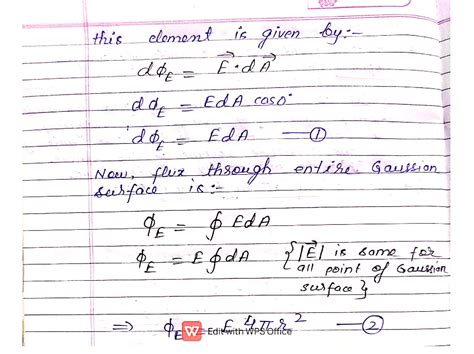 this element is given by:-
dϕ_E = E⃗ · dA⃗
dϕ_E = EdA cos0°
dϕ_E = EdA —①
Now, flux through entire Gaussion
surface is:-
ϕ_E = ∮ EdA
ϕ_E = E∮dA {|E⃗| is same for
all point of Gaussian
surface}
⇒ ϕ_E E 4πr² —②
Edit with WPS Office